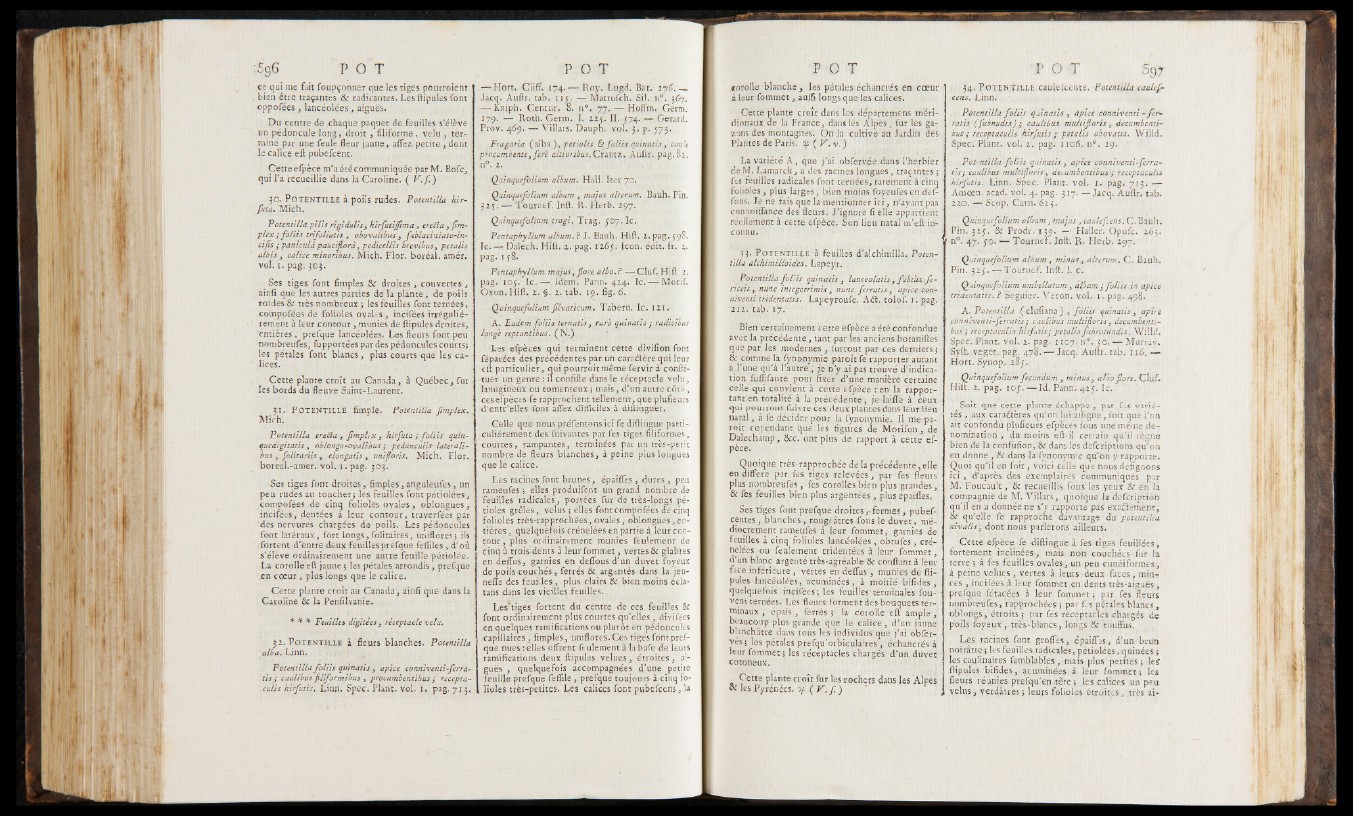 596 P O T
ce qui me fait ſoupçonner que les tiges pourroient
bien être traçantes & radicantes. Les ſtipules ſont
oppoſées, lancéolées, aiguës.
Du centre de chaque paquet de feuilles s'élève
un pédoncule long, droit, filiforme, velu, ter-
miné par une ſeule fleur jaune, aſſez petite, dont
le calice eſt pubeſcent.
Cette eſpèce m'a été communiquée par M. Boſc,
qui l'a recueillie dans la Caroline. ( V. ſ. )
30. POTENTILLE à poils rudes. Potentilla hir-
ſuta. Mich.
Potentilla pilis rigidulis, hirſutiſſima, erecta, ſim-
plex; foliis trifoliatis, obovalibus, ſublaciniato-in-
ciſis; paniculâ pauciflorâ, pedicellis brevibus, petalis
albis, calice minoribus. Mich. Flor. boréal. amér.
vol. 1. pag. 303.
Ses tiges ſont ſimples & droites, couvertes,
ainſi que les autres parties de la plante, de poils
roides & très nombreux; les feuilles ſont ternées,
compoſées de folioles ovales, inciſées irréguliè-
rement à leur contour, munies de ſtipules droites,
entières, preſque lancéolées. Les fleurs ſont peu
nombreuſes, ſupportées par des pédoncules courts;
les pétales ſont blancs, plus courts que les ca-
lices.
Cette plante croît au Canada, à Québec, ſur
les bords du fleuve Saint-Laurent.
31. POTENTILLE ſimple. Potentilla ſimplex.
Mich.
Potentilla erecta, ſimplex, hirſuta; foliis quin-
quedigitatis, oblongo-ovalibus; pedunculis laterali-
bus, ſolitariis, elongatis, unifloris. Mich. Flor.
boreal.-amer. vol. 1. pag. 303.
Ses tiges ſont droites, ſimples, anguleuſes, un
peu rudes au toucher; les feuilles ſont pétiolées,
compoſées de cinq folioles ovales, oblongues,
inciſées, dentées à leur contour, traverſées par
des nervures chargées de poils. Les pédoncules
ſont latéraux, fort longs, ſolitaires, uniflores; ils
ſortent d'entre deux feuilles preſque ſeſſiles, d'où
s'élève ordinairement une autre feuille pétiolée.
La corolle eſt jaune; les pétales arrondis, preſque
en cœur, plus longs que le calice.
Cette plante croît au Canada, ainſi que dans la
Caroline & la Penſilvanie.
* * * Feuilles digitées, réceptacle velu.
32. POTENTILLE à fleurs blanches. Potentilla
alba. Linn.
Potentilla foliis quinatis, apice conniventi-ſerra-
tis; caulibus filiformibus, procumbentibus; recepta-
culis hirſutis. Linn. Spec. Plant. vol. 1. pag. 713.
P O T
— Hort. Cliff. 174. — Roy. Lugd. Bat. 276. —
Jacq. Auſtr. tab. 115. — Mattuſch. Sil. n°. 367.
— Kniph. Centur. 8. n°. 77. — Hoffm. Germ.
179. — Roth. Germ. I. 225. II. 574. — Gerard.
Prov. 469. — Villars. Dauph. vol. 3. p. 575.
Fragaria (alba), petiolis & foliis quinatis, caule
procumbente, ferè altioribus. Crantz. Auſtr. pag. 81.
n°. 2.
Quinquefolium album. Hall. Iter 70.
Quinquefolium album, majus alterum. Bauh. Pin.
325. — Tournef. Inſt. R. Herb. 297.
Quinquefolium tragi. Trag. 507. Ic.
Pentaphyllum album.? J. Bauh. Hiſt. 2. pag. 398.
Ic. — Dalech. Hiſt. 2. pag. 1265. Icon. édit. fr. 2.
pag. 158.
Pentaphyllum majus, flore albo.? — Cluſ. Hiſt. 2.
pag. 105. Ic. — Idem. Pann. 424. Ic. — Moriſ.
Oxon. Hiſt. 2. §. 2. tab. 19. fig. 6.
Quinquefolium ſilvaticum. Tabern. Ic. 121.
A. Eadem foliis ternatis, rarò quinatis; radicibus
longè reptantibus. (N.)
Les eſpèces qui terminent cette diviſion ſont
ſéparées des précédentes par un caractère qui leur
eſt particulier, qui pourroit même ſervir à conſti-
tuer un genre: il conſiſte dans le réceptacle velu,
lanugineux ou tomenteux; mais, d'un autre côté,
ces eſpèces ſe rapprochent tellement, que pluſieurs
d'entr'elles ſont aſſez difficiles à diſtinguer.
Celle que nous préſentons ici ſe diſtingue parti-
culiérement des ſuivantes par ſes tiges filiformes,
courtes, rampantes, terminées par un très-petit
nombre de fleurs blanches, à peine plus longues
que le calice.
Les racines ſont brunes, épaiſſes, dures, peu
rameuſes; elles produiſent un grand nombre de
feuilles radicales, portées ſur de très-longs pé-
tioles grêles, velus; elles ſont compoſées de cinq
folioles très-rapprochées, ovales, oblongues, en-
tières, quelquefois crénelées en partie à leur con-
tour, plus ordinairement munies ſeulement de
cinq à trois dents à leur ſommet, vertes & glabres
en deſſus, garnies en deſſous d'un duvet ſoyeux
de poils couchés, ſerrés & argentés dans la jeu-
neſſe des feuilles, plus clairs & bien moins écla-
tans dans les vieilles feuilles.
Les tiges ſortent du centre de ces feuilles &
ſont ordinairement plus courtes qu'elles, diviſées
en quelques ramifications ou plutôt en pédoncules
capillaires, ſimples, uniflores. Ces tiges ſont preſ-
que nues: elles offrent ſeulement à la baſe de leurs
ramifications deux ſtipules velues, étroites, ai-
guës, quelquefois accompagnées d'une petite
feuille preſque ſeſſile, preſque toujours à cinq fo-
lioles très-petites. Les calices ſont pubeſcens, la
P O T
corolle blanche, les pétales échancrés en cœur
à leur ſommet, auſſi longs que les calices.
Cette plante croît dans les départemens méri-
dionaux de la France, dans les Alpes, ſur les ga-
zons des montagnes. On la cultive au Jardin des
Plantes de Paris. ♃ ( V. v. )
La variété A, que j'ai obſervée dans l'herbier
de M. Lamarck, a des racines longues, traçantes;
ſes feuilles radicales ſont ternées, rarement à cinq
folioles, plus larges, bien moins ſoyeuſes en deſ-
ſous. Je ne fais que la mentionner ici, n'ayant pas
connoiſſance des fleurs. J'ignore ſi elle appartient
réellement à cette eſpèce. Son lieu natal m'eſt in-
connu.
33. POTENTILLE à feuilles d'alchimilla. Poten-
tilla alchimilloides. Lapeyr.
Potentilla foliis quinatis, lanceolatis, ſubtùs ſe-
riceis, nunc integerrimis, nunc ſerratis, apice con-
niventi tridentatis. Lapeyrouſe. Act. toloſ. 1. pag.
212. tab. 17.
Bien certainement cette eſpèce a été confondue
avec la précédente, tant par les anciens botaniſtes
que par les modernes, ſurtout par ces derniers;
& comme la ſynonymie paroît ſe rapporter autant
à l'une qu'à l'autre, je n'y ai pas trouvé d'indica-
tion ſuffiſante pour fixer d'une manière certaine
celle qui convient à cette eſpèce: en la rappor-
tant en totalité à la précédente, je laiſſe à ceux
qui pourront ſuivre ces deux plantes dans leur lieu
natal, à ſe décider pour la ſynonymie. Il me pa-
roît cependant que les figures de Moriſon, de
Dalechamp, &c. ont plus de rapport à cette eſ-
pèce.
Quoique très-rapprochée de la précédente, elle
en diffère par ſes tiges relevées, par ſes fleurs
plus nombreuſes, ſes corolles bien plus grandes,
& ſes feuilles bien plus argentées, plus épaiſſes.
Ses tiges ſont preſque droites, fermes, pubeſ-
centes, blanches, rougeâtres ſous le duvet, mé-
diocrement rameuſes à leur ſommet, garnies de
feuilles à cinq folioles lancéolées, obtuſes, cré-
nelées ou ſeulement tridentées à leur ſommet,
d'un blanc argenté très-agréable & conſtant à leur
face inférieure, vertes en deſſus, munies de ſti-
pules lancéolées, acuminées, à moitié bifides,
quelquefois inciſées; les feuilles terminales ſou-
vent ternées. Les fleurs forment des bouquets ter-
minaux, épais, ſerrés; la corolle eſt ample,
beaucoup plus grande que le calice, d'un jaune
blanchâtre dans tous les individus que j'ai obſer-
vés; les pétales preſqu'orbiculaires, échancrés à
leur ſommet; les réceptacles chargés d'un duvet
cotoneux.
Cette plante croît ſur les rochers dans les Alpes
& les Pyrénées. ♃ ( V. ſ. )
P O T 597
34. POTENTILLE cauleſcente. Potentilla cauleſ-
cens. Linn.
Potentilla foliis quinatis, apice conniventi-ſer-
ratis (ſubnudis); caulibus multifloris, decumbenti-
bus; receptaculis hirſutis; petalis obovatis. Willd.
Spec. Plant. vol. 2. pag. 1106. n°. 29.
Potentilla foliis quinatis, apice conniventi-ſerra-
tis; caulibus multifloris, decumbentibus; receptaculis
hirſutis. Linn. Spec. Plant. vol. 1. pag. 713. —
Amoen. acad. vol. 4. pag. 317. — Jacq. Auſtr. tab.
220. — Scop. Carn. 623.
Quinquefolium album, majus, cauleſcens. C. Bauh.
Pin. 325. & Prodr. 139. — Haller. Opuſc. 263.
n°. 47. 50. — Tournef. Inſt. R. Herb. 297.
Quinquefolium album, minus, alterum. C. Bauh.
Pin. 325. — Tournef. Inſt. l. c.
Quinquefolium umbellatum, album; foliis in apice
tridentatis. ? Séguier. Veron. vol. 1. pag. 498.
A. Potentilla (cluſiana), foliis quinatis, apice
conniventi-ſerratis; caulibus multifloris, decumbenti-
bus; receptaculis hirſutis; petalis ſubrotundis. Willd.
Spec. Plant. vol. 2. pag. 1107. n°. 30. — Murray.
Syſt. veget. pag. 478. — Jacq. Auſtr. tab. 116. —
Hort. Synop. 285.
Quinquefolium ſecundum, minus, albo flore. Cluſ.
Hiſt. 2. pag. 105. — Id. Pann. 425. Ic.
Soit que cette plante échappe, par ſes varié-
tés, aux caractères qu'on lui aſſigne, ſoit que l'on
ait confondu pluſieurs eſpèces ſous une même dé-
nomination, du moins eſt-il certain qu'il règne
bien de la confuſion, & dans les deſcriptions qu'on
en donne, & dans la ſynonymie qu'on y rapporte.
Quoi qu'il en ſoit, voici celle que nous déſignons
ici, d'après des exemplaires communiqués par
M. Foucault, & recueillis ſous les yeux & en la
compagnie de M. Villars, quoique la deſcription
qu'il en a donnée ne s'y rapporte pas exactement,
& qu'elle ſe rapproche davantage du potentilla
nivalis, dont nous parlerons ailleurs.
Cette eſpèce ſe diſtingue à ſes tiges feuillées,
fortement inclinées, mais non couchées ſur la
terre; à ſes feuilles ovales, un peu cunéiformes,
à peine velues, vertes à leurs deux faces, min-
ces, inciſées à leur ſommet en dents très-aiguës,
preſque ſétacées à leur ſommet; par ſes fleurs
nombreuſes, rapprochées; par ſes pétales blancs,
oblongs, étroits; par ſes réceptacles chargés de
poils ſoyeux, très-blancs, longs & touffus.
Les racines ſont groſſes, épaiſſes, d'un brun
noirâtre; les feuilles radicales, pétiolées, quinées;
les caulinaires ſemblables, mais plus petites; les
ſtipules bifides, acuminées à leur ſommet; les
fleurs réunies preſqu'en tête; les calices un peu
velus, verdâtres; leurs folioles étroites, très ai-